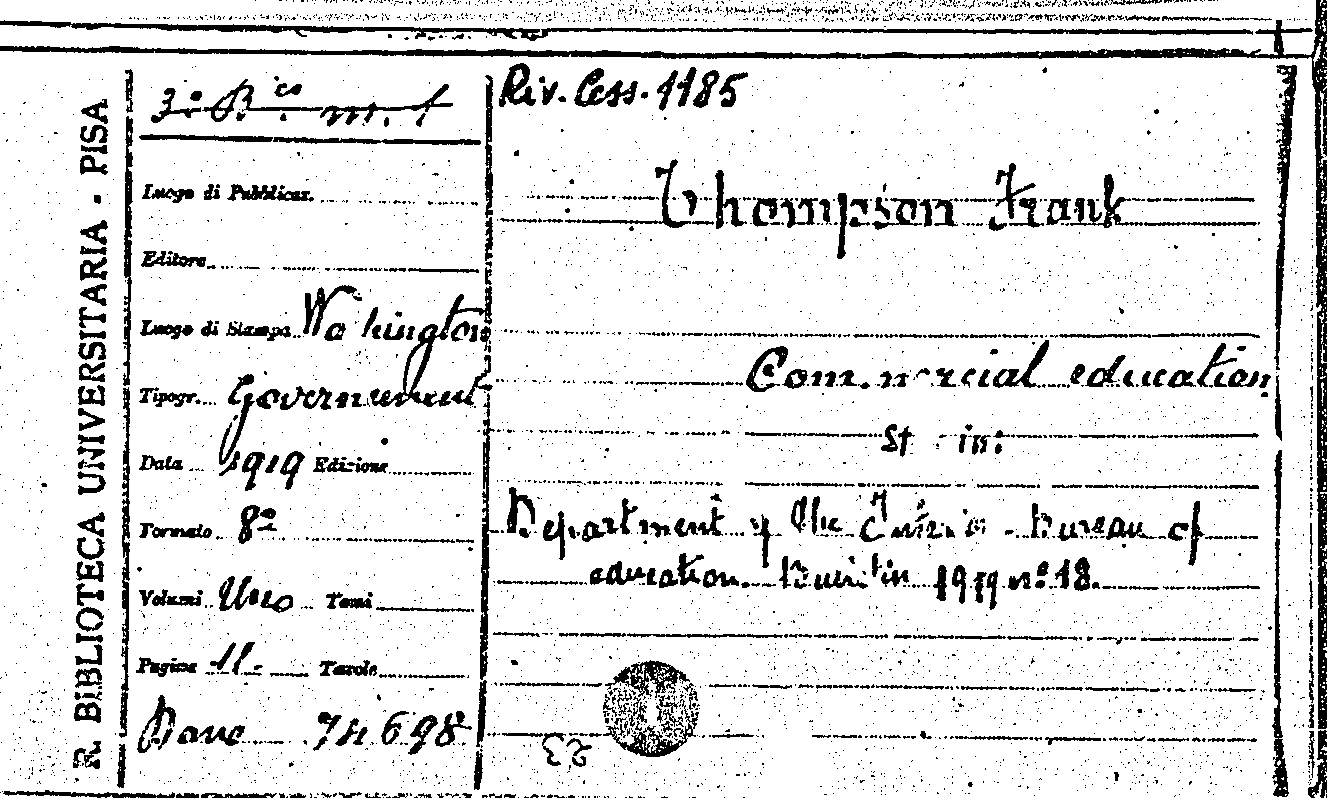 R. BIBLIOTECA UNIVERSITARIA - PISA
3º B.ca m. 1
Luogo di Pubblicaz.
Editore
Luogo di Stampa Wa hington
Tipogr. Government
Data 1919 Edizione
Formato 8º
Volumi Uno Tomi
Pagine 11. Tavole
Dono 74698
Riv. Cess. 1185
Thompson Frank
Commercial education
St in:
Department of the Interior - Bureau of
education. Bulletin 1919 nº 18.
23